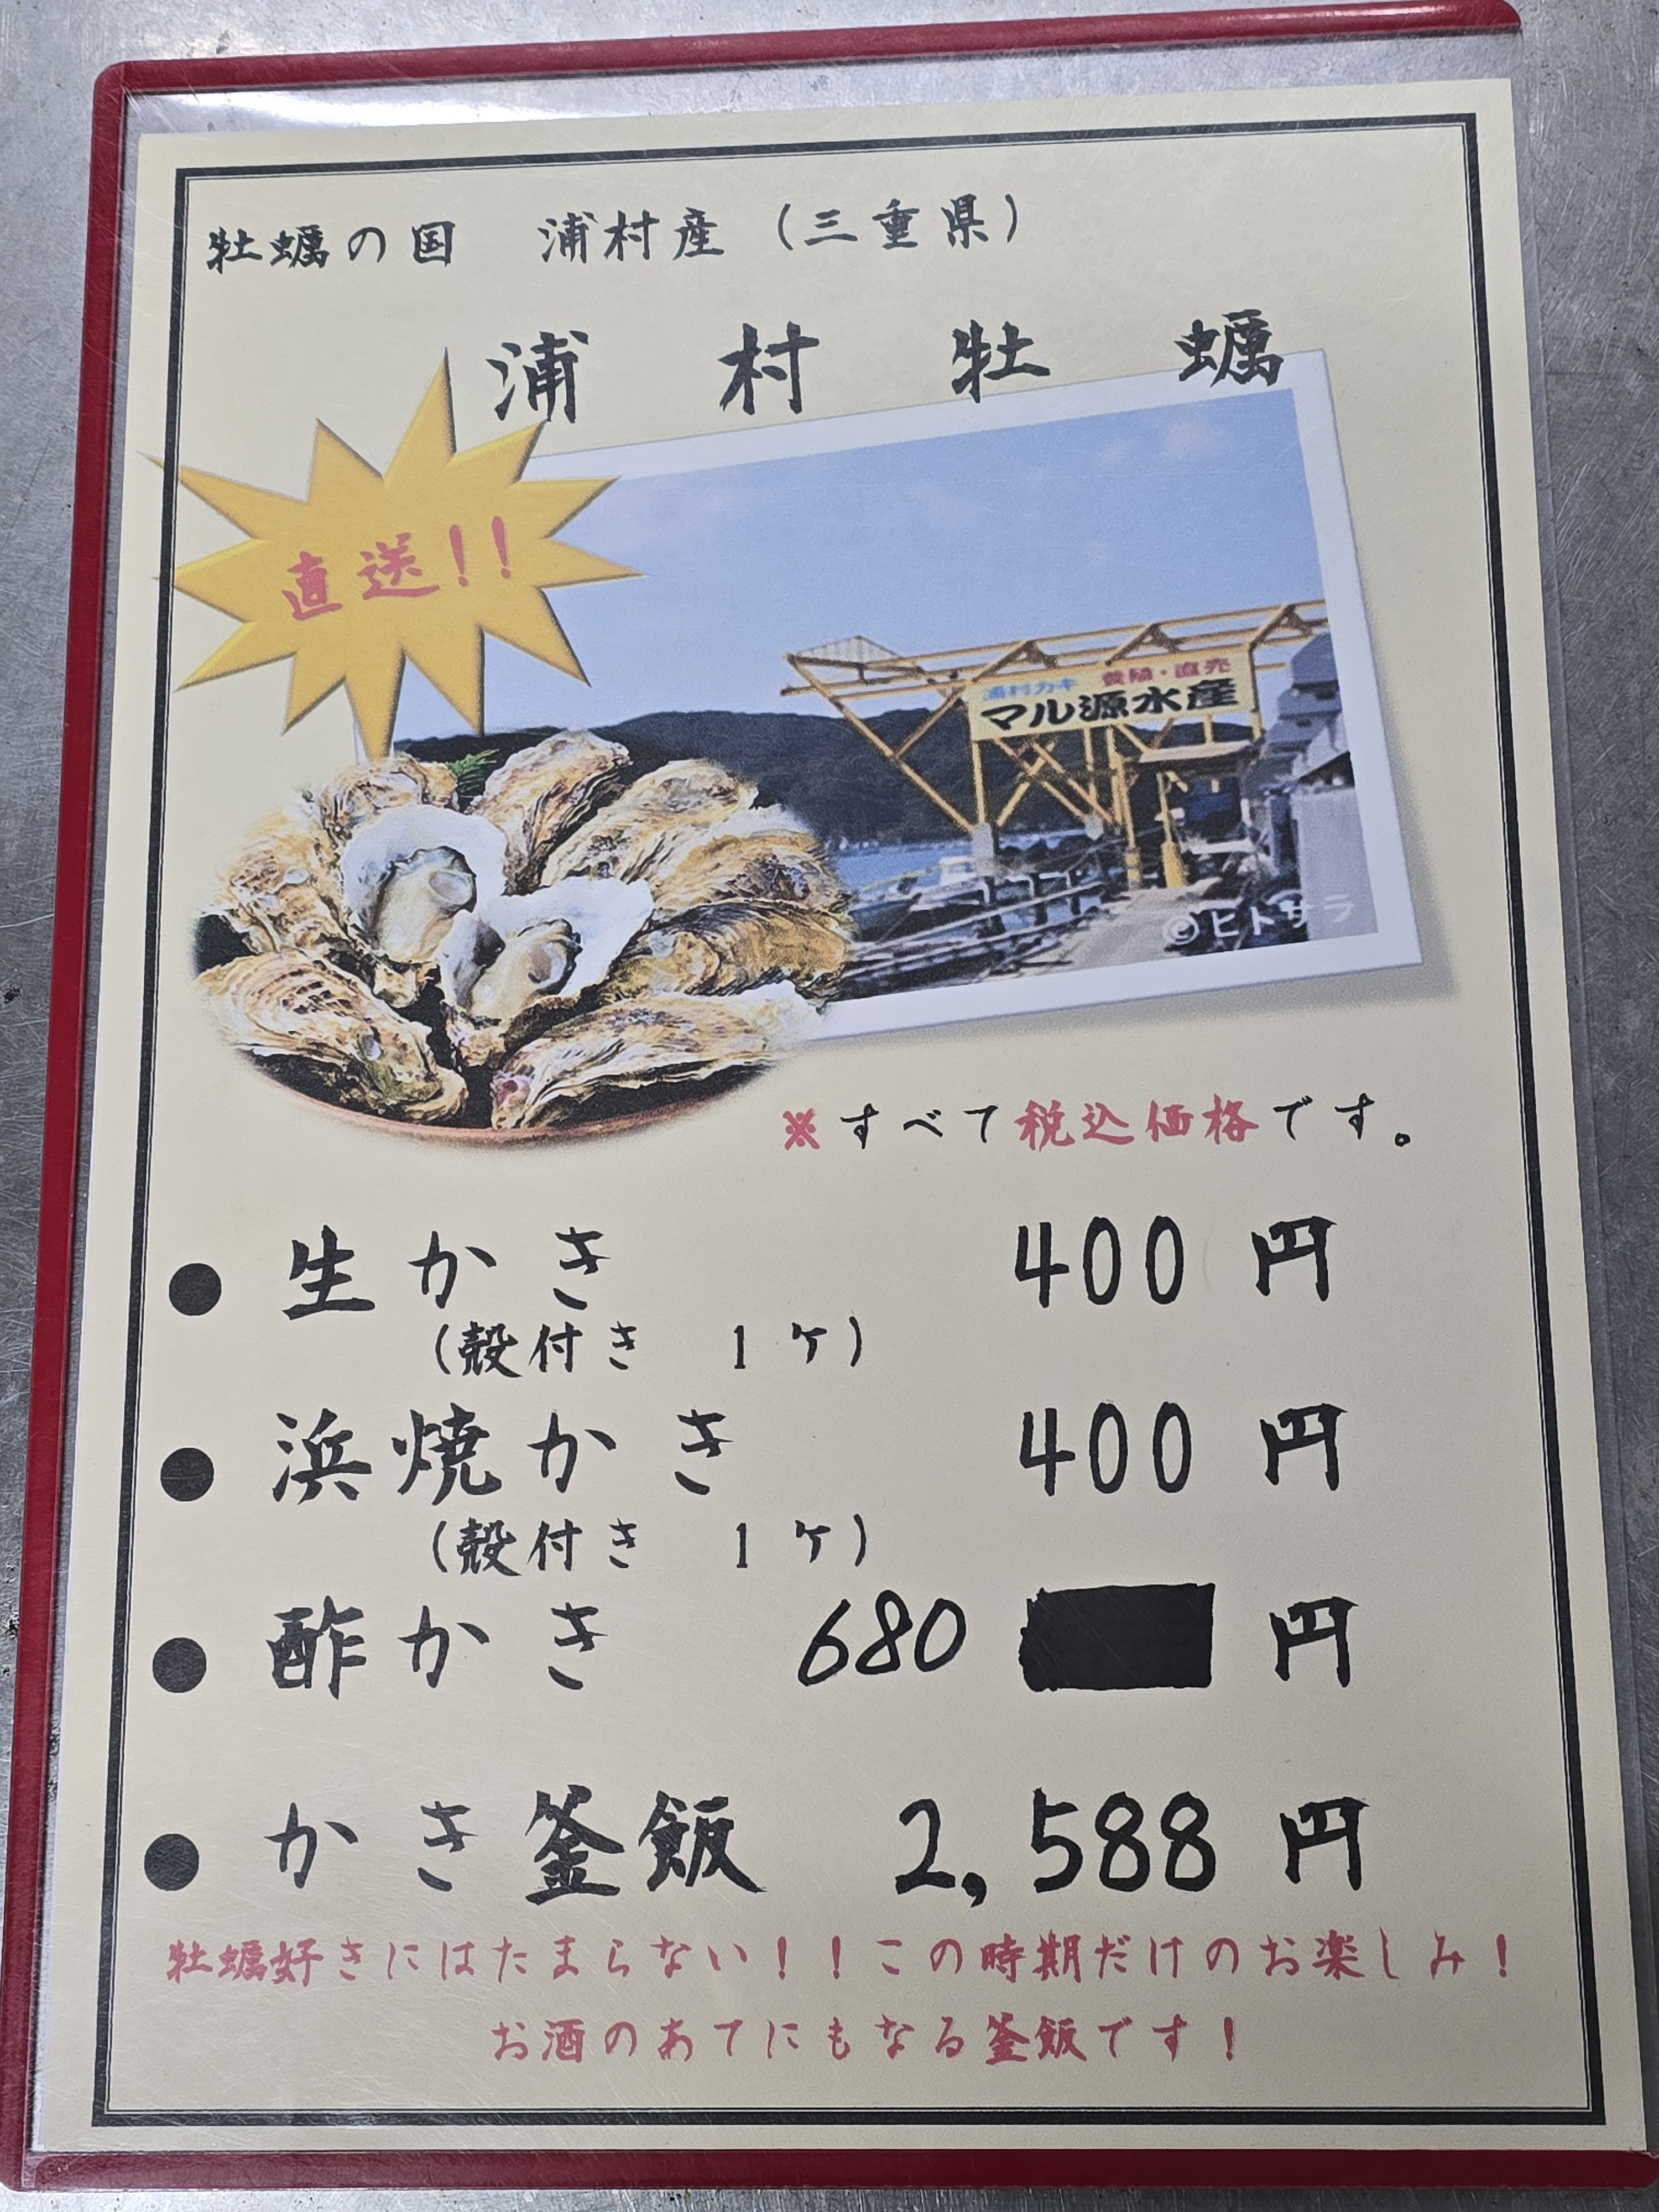 牡蠣の国　浦村産（三重県）
浦村牡蠣
直送！！
浦村カキ　養殖・直売
マル源水産
©ヒトサラ
※すべて税込価格です。
● 生かき　400円
（殻付き　1ヶ）
● 浜焼かき　400円
（殻付き　1ヶ）
● 酢かき　680　円
● かき釜飯　2,588円
牡蠣好きにはたまらない！！この時期だけのお楽しみ！
お酒のあてにもなる釜飯です！